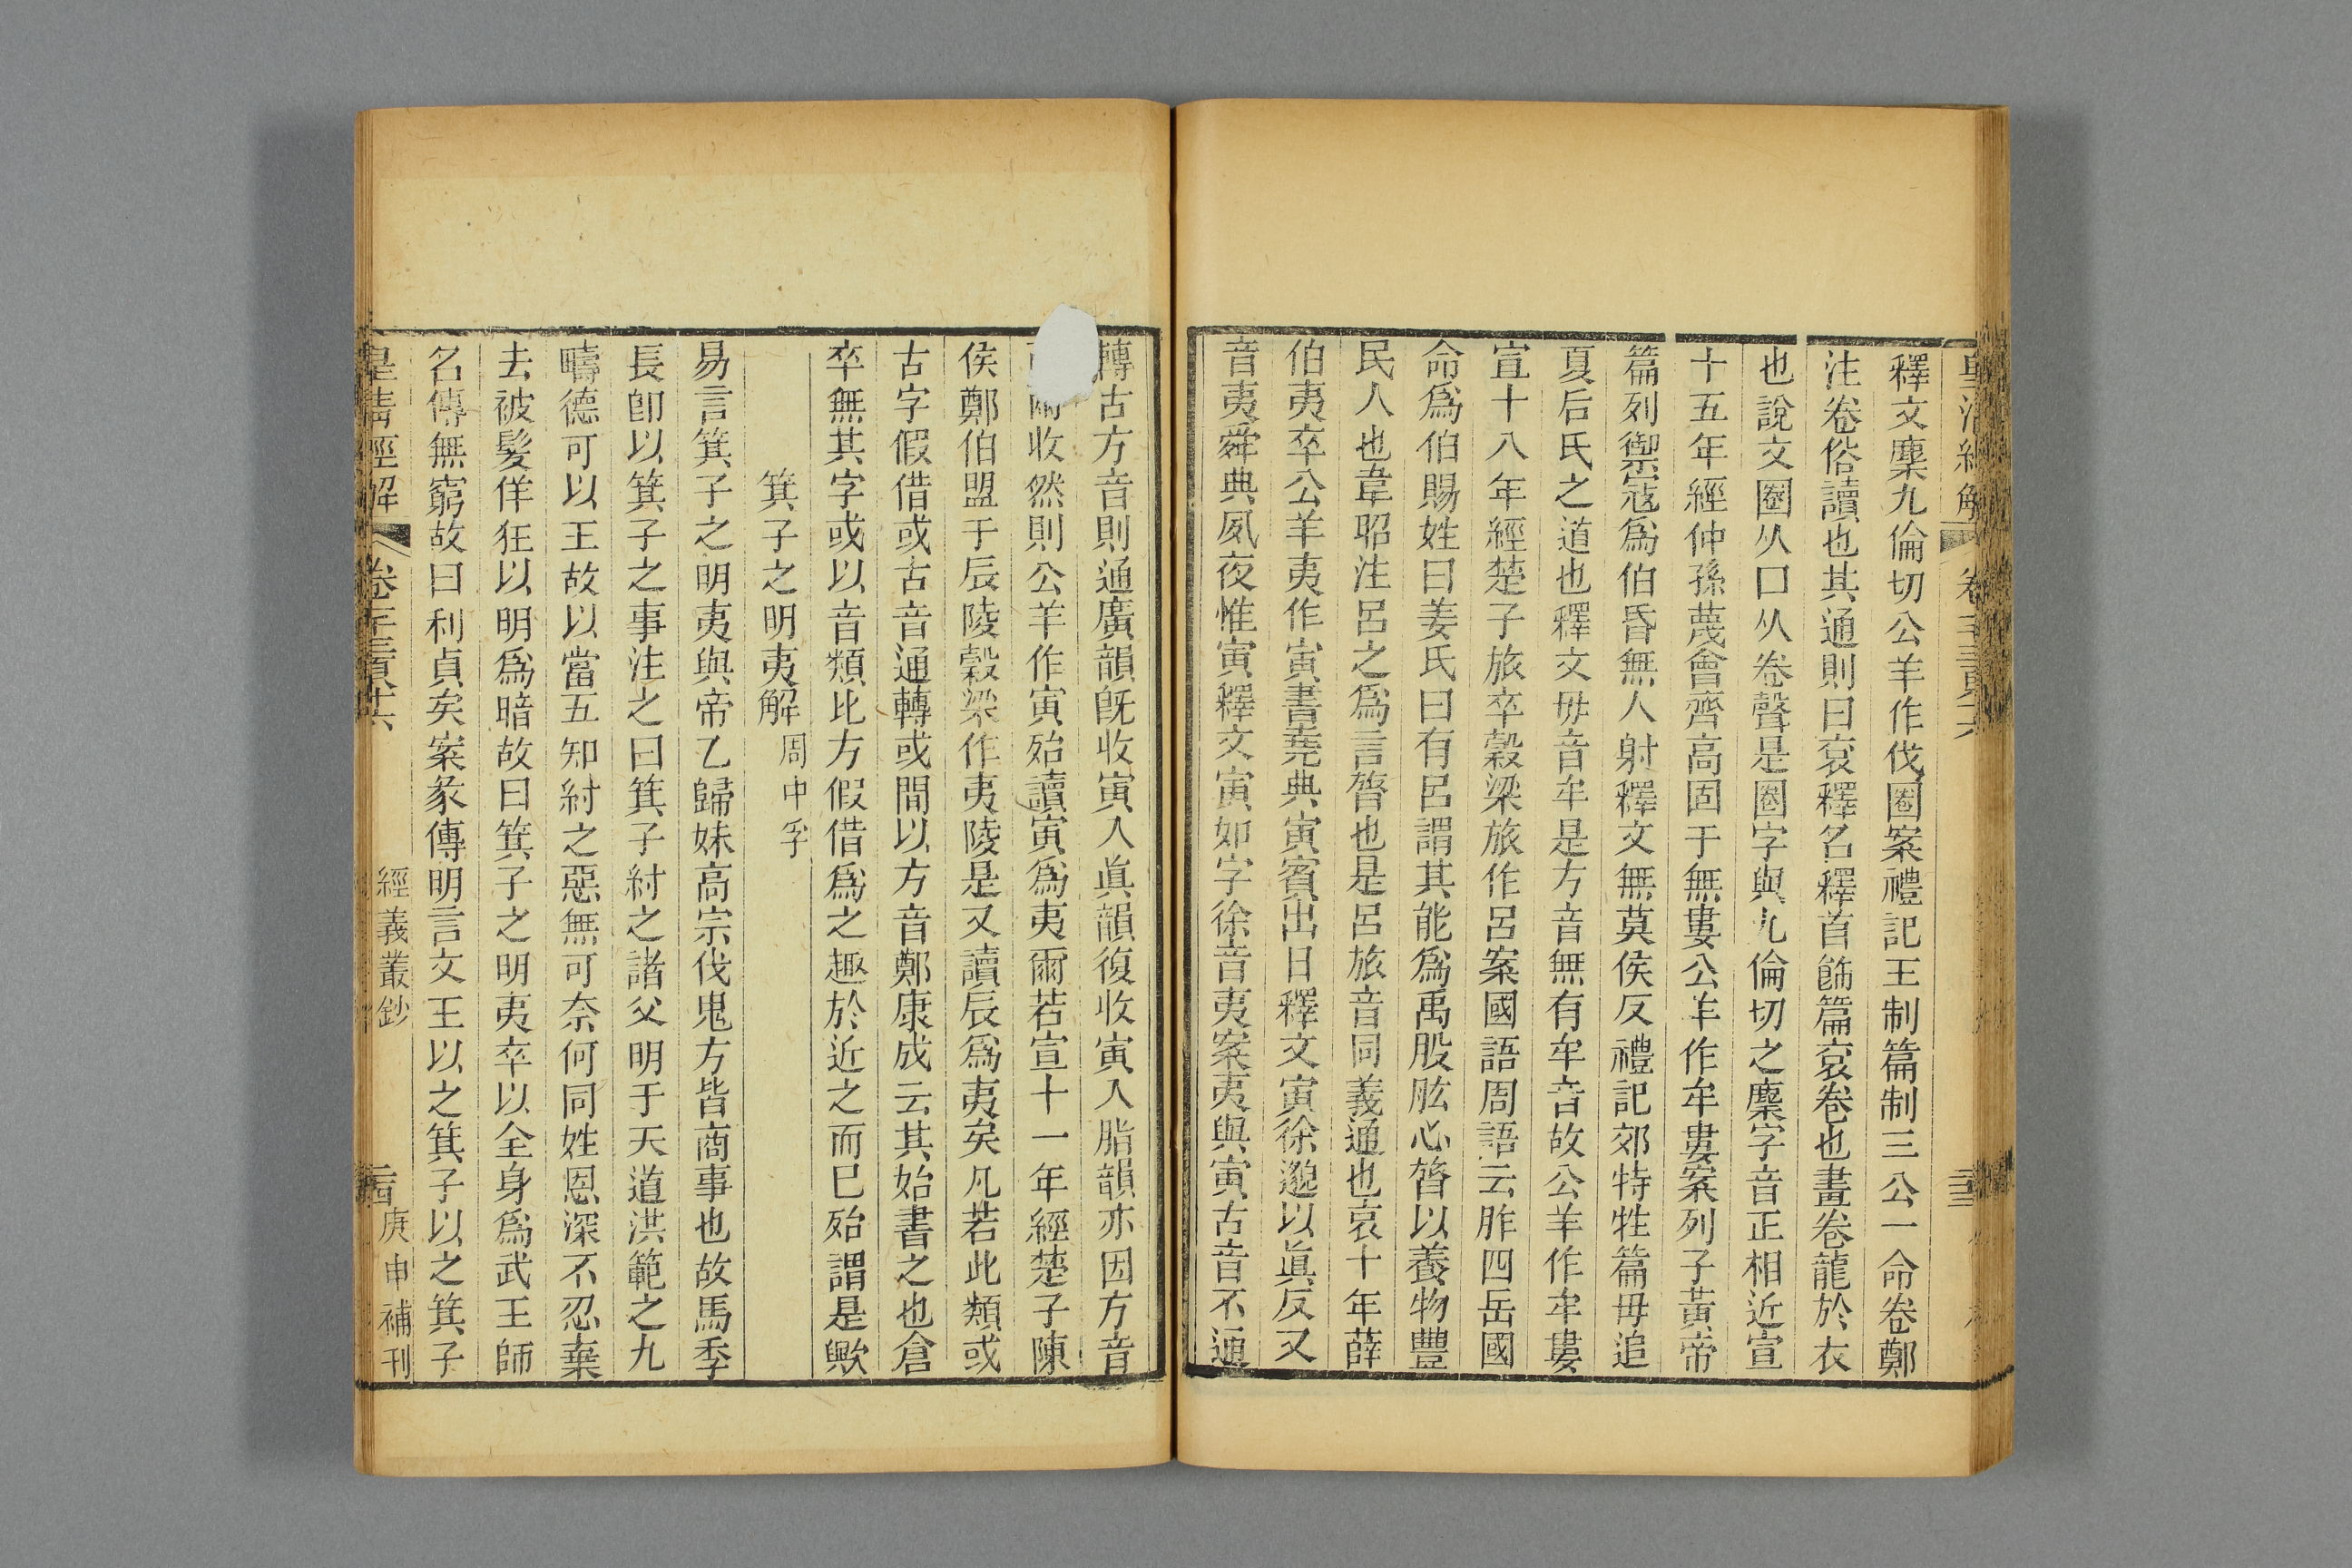 皇清經解
釋文麇九倫切公羊作伐圈案禮記王制篇制三公一命卷鄭
注卷俗讀也其通則曰衮釋名釋首飾篇衮卷也畫卷龍於衣
也說文圈从囗从卷聲是圈字與九倫切之麇字音正相近宣
十五年經仲孫蔑會齊高固于無婁公羊作牟婁案列子黃帝
篇列禦寇爲伯昏無人射釋文無莫侯反禮記郊特牲篇毋追
夏后氏之道也釋文毋音牟是方音無有牟音故公羊作牟婁
宣十八年經楚子旅卒穀梁旅作呂案國語周語云胙四岳國
命爲伯賜姓曰姜氏曰有呂謂其能爲禹股肱心膂以養物豐
民人也韋昭注呂之爲言膂也是呂旅音同義通也哀十年薛
伯夷卒公羊夷作寅書堯典寅賓出日釋文寅徐邈以眞反又
音夷舜典夙夜惟寅釋文寅如字徐音夷案夷與寅古音不通
轉古方音則通廣韻旣收寅入眞韻復收寅入脂韻亦因方音
爾收然則公羊作寅殆讀寅爲夷爾若宣十一年經楚子陳
侯鄭伯盟于辰陵穀梁作夷陵是又讀辰爲夷矣凡若此類或
古字假借或古音通轉或間以方音鄭康成云其始書之也倉
卒無其字或以音類比方假借爲之趣於近之而已殆謂是歟
箕子之明夷解 周中孚
易言箕子之明夷與帝乙歸妹高宗伐鬼方皆商事也故馬季
長卽以箕子之事注之曰箕子紂之諸父明于天道洪範之九
疇德可以王故以當五知紂之惡無可奈何同姓恩深不忍棄
去被髮佯狂以明爲暗故曰箕子之明夷卒以全身爲武王師
名傳無窮故曰利貞矣案彖傳明言文王以之箕子以之箕子
皇清經解 卷千三百八十六 經義叢鈔 二十四 庚申補刊